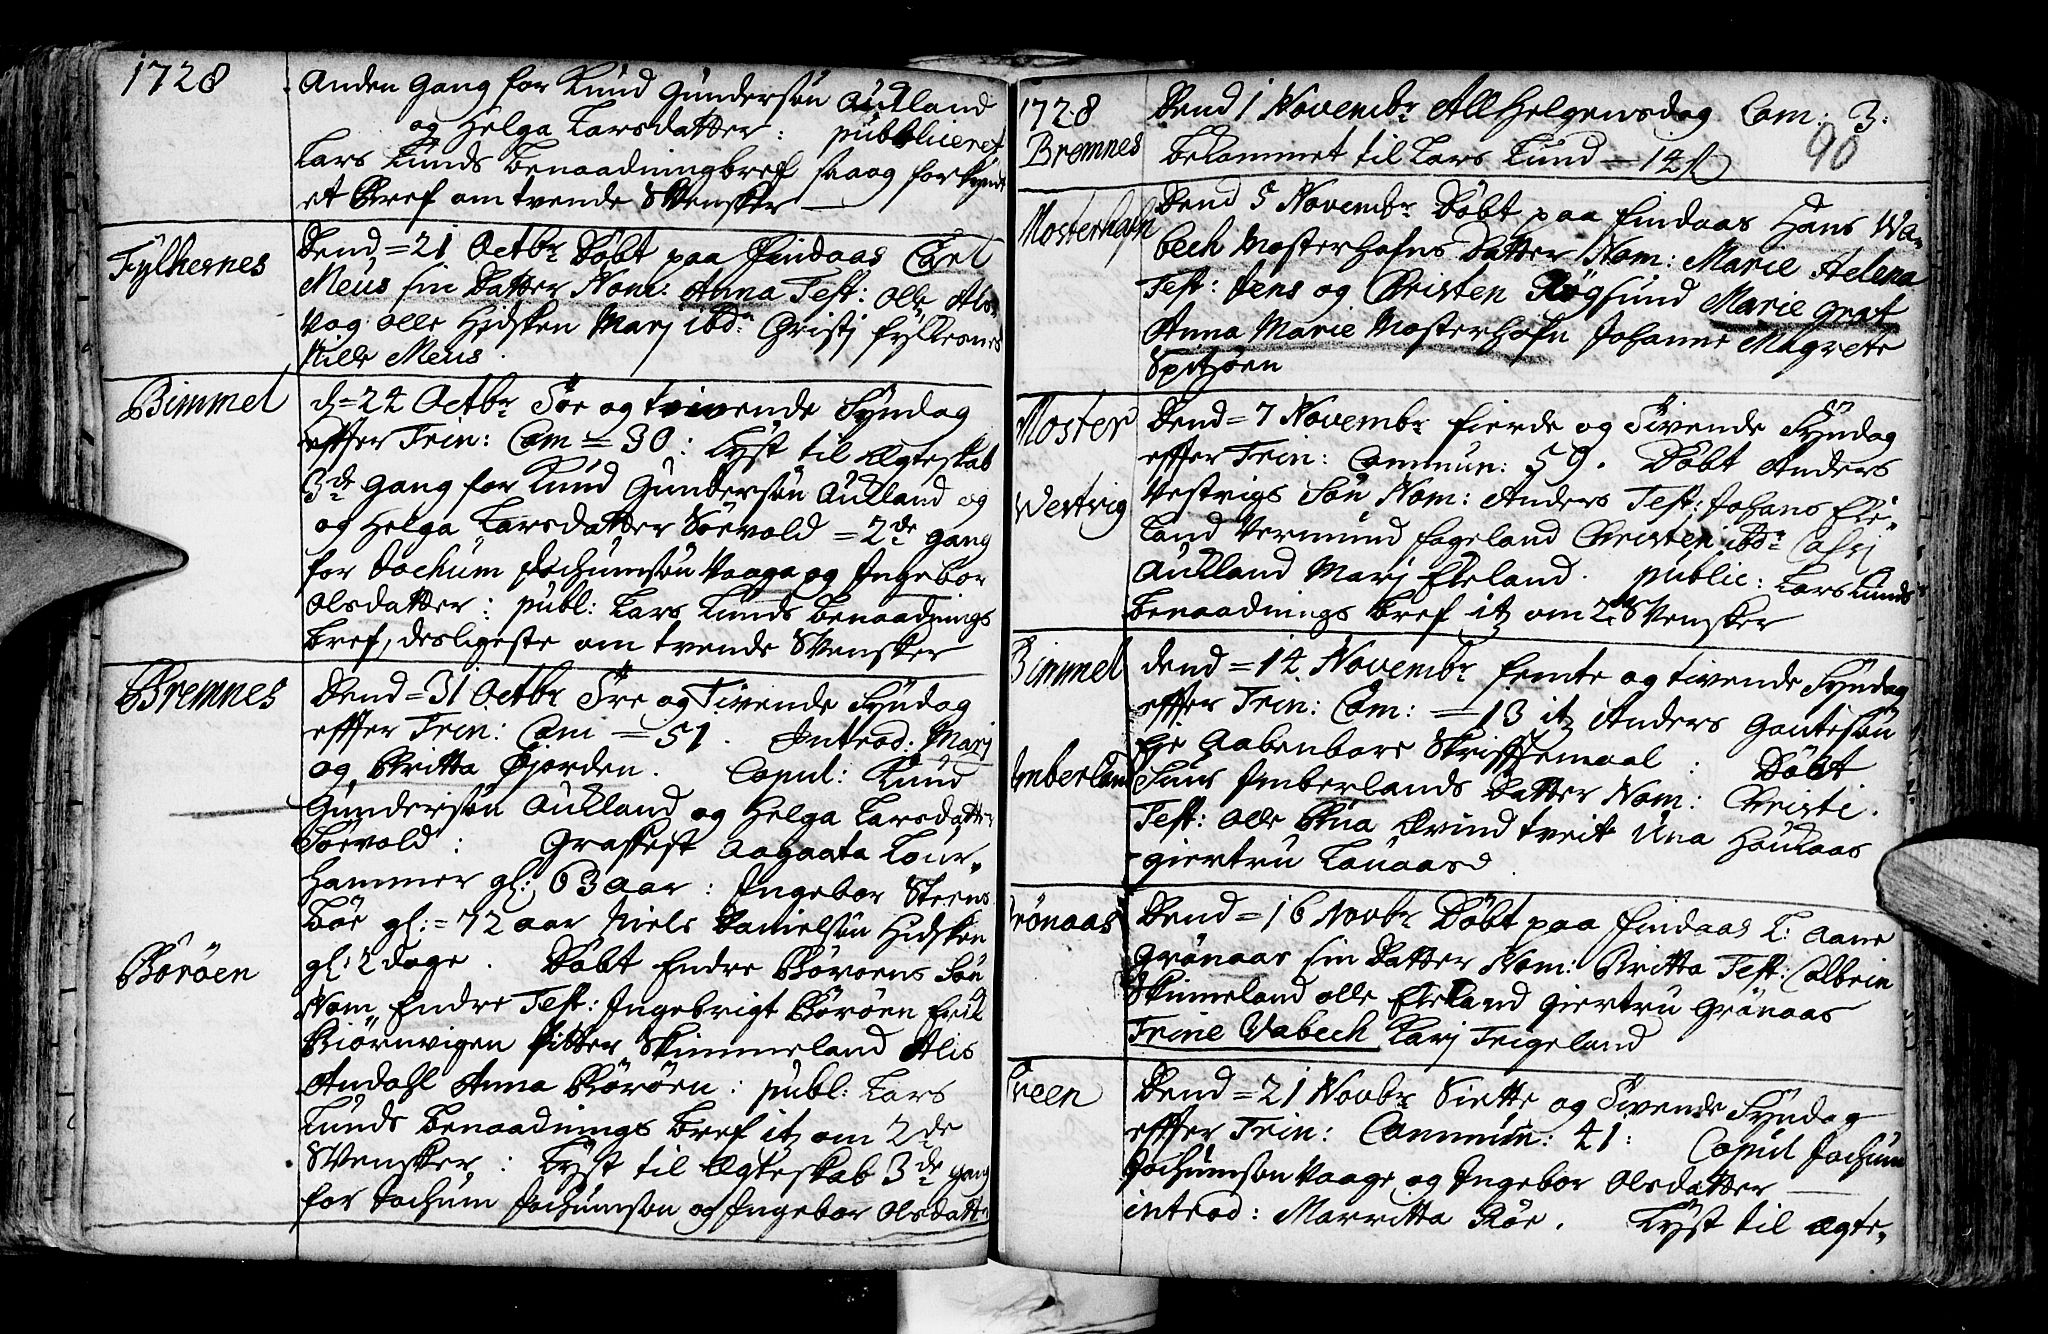 1728
Anden gang for Knud Gundersøn Aukland
og Helga Larsdatter: publiceret
Lars Lunds benaadningbref saaog forkynt
et Bref om tvende Svensker —
Fylkesnes
Dend =21 Octbr Døbt paa Findaas Carl
Meus sin Datter Nom: Anna Test: Olle
Vog Olle Hidsken Marj ibd: Christj Fylkesnes
Kille Meus.
Bimmel
d= 24 Octbr Tre og tivende Syndag
effter Trin: Com = 30: Lyst til Ægteskab
3de gang for Knud Gundersøn Aukland og
og Helga Larsdatter Sørvold = 2de gang
for Jochum Jochumsøn Vaage og Ingebor
Olsdatter: publ: Lars Lunds benaadnings
bref, desligeste om tvende Svensker
Bremnes
Dend =31 Octbr Tre og Tivende Syndag
effter Trin: Com = 51. Introd: Marj
og Britta Gjorden. Copul: Knud
Gundersøn Aukland og Helga Larsdatter
Sørvold: Graffest Aagaata Lour-
hammer gl: 63 aar: Ingebor Steens
bøe gl: = 72 aar Niels Danielsøn Hidsken
gl: 2 dage. Døbt Endre Børøens Søn
Børøen
Nom Endre Test: Ingebrigt Børøen Erik
Biørnvigen Pitter Skimmeland Alis
Andahl Anna Børøen: publ: Lars
Lunds benaadnings bref it om 2de
Svensker: Lyst til Ægteskab 3de gang
for Jochum Jochumsøn og Ingebor Olsdatt:
1728
Bremnes
Dend 1 Novembr All Helgensdag Com: 3:
90
bekommet til Lars Lund — 14
Mosterhafn
Dend 5 Novembr Døbt paa Findaas Hans Wa-
bech Mosterhafns Datter Nom: Marie Helena
Test: Jens og Christen Røgsund Marie Grot
Anna Marie Mosterhafn Johanne Magrete
Spitzøen
Moster
Dend = 7 Novembr fierde og Tivende Syndag
effter Trin: Commun: 59. Døbt Anders
Westvig
Vestvigs Søn Nom: Anders Test: Johans Ele-
land Vermund Fageland Christen ibd:
Aukland Marj Eleland. public: Lars Lunds
benaadnings bref it om 2de Svensker
Bimmel
Dend = 14 Novembr femte og tivende Syndag
effter Trin: Com: = 13 it Anders Gautesøn
Eje Aabenbare Skrifftemaal: Døbt
Imberland
Imberlands Datter Nom: Christi.
Test: Olle Øvind tveit Una Houkaas
giertru Lauaas
Grønaas
Dend = 16 Novbr Døbt paa Findaas L: Aane
Grønaas sin Datter Nom: Britta Test: Colbein
Skimmeland Olle Eleland giertru Grønaas
Trine Vabech Karj Trigeland
Fieen
Dend = 21 Novbr Siette og Tivende Syndag
effter Trin: Commun: 41: Copul Jochum
Jochumsøn Vaage og Ingebor Olsdatter —
introd: Marritta Røe. Lyst til Ægte-